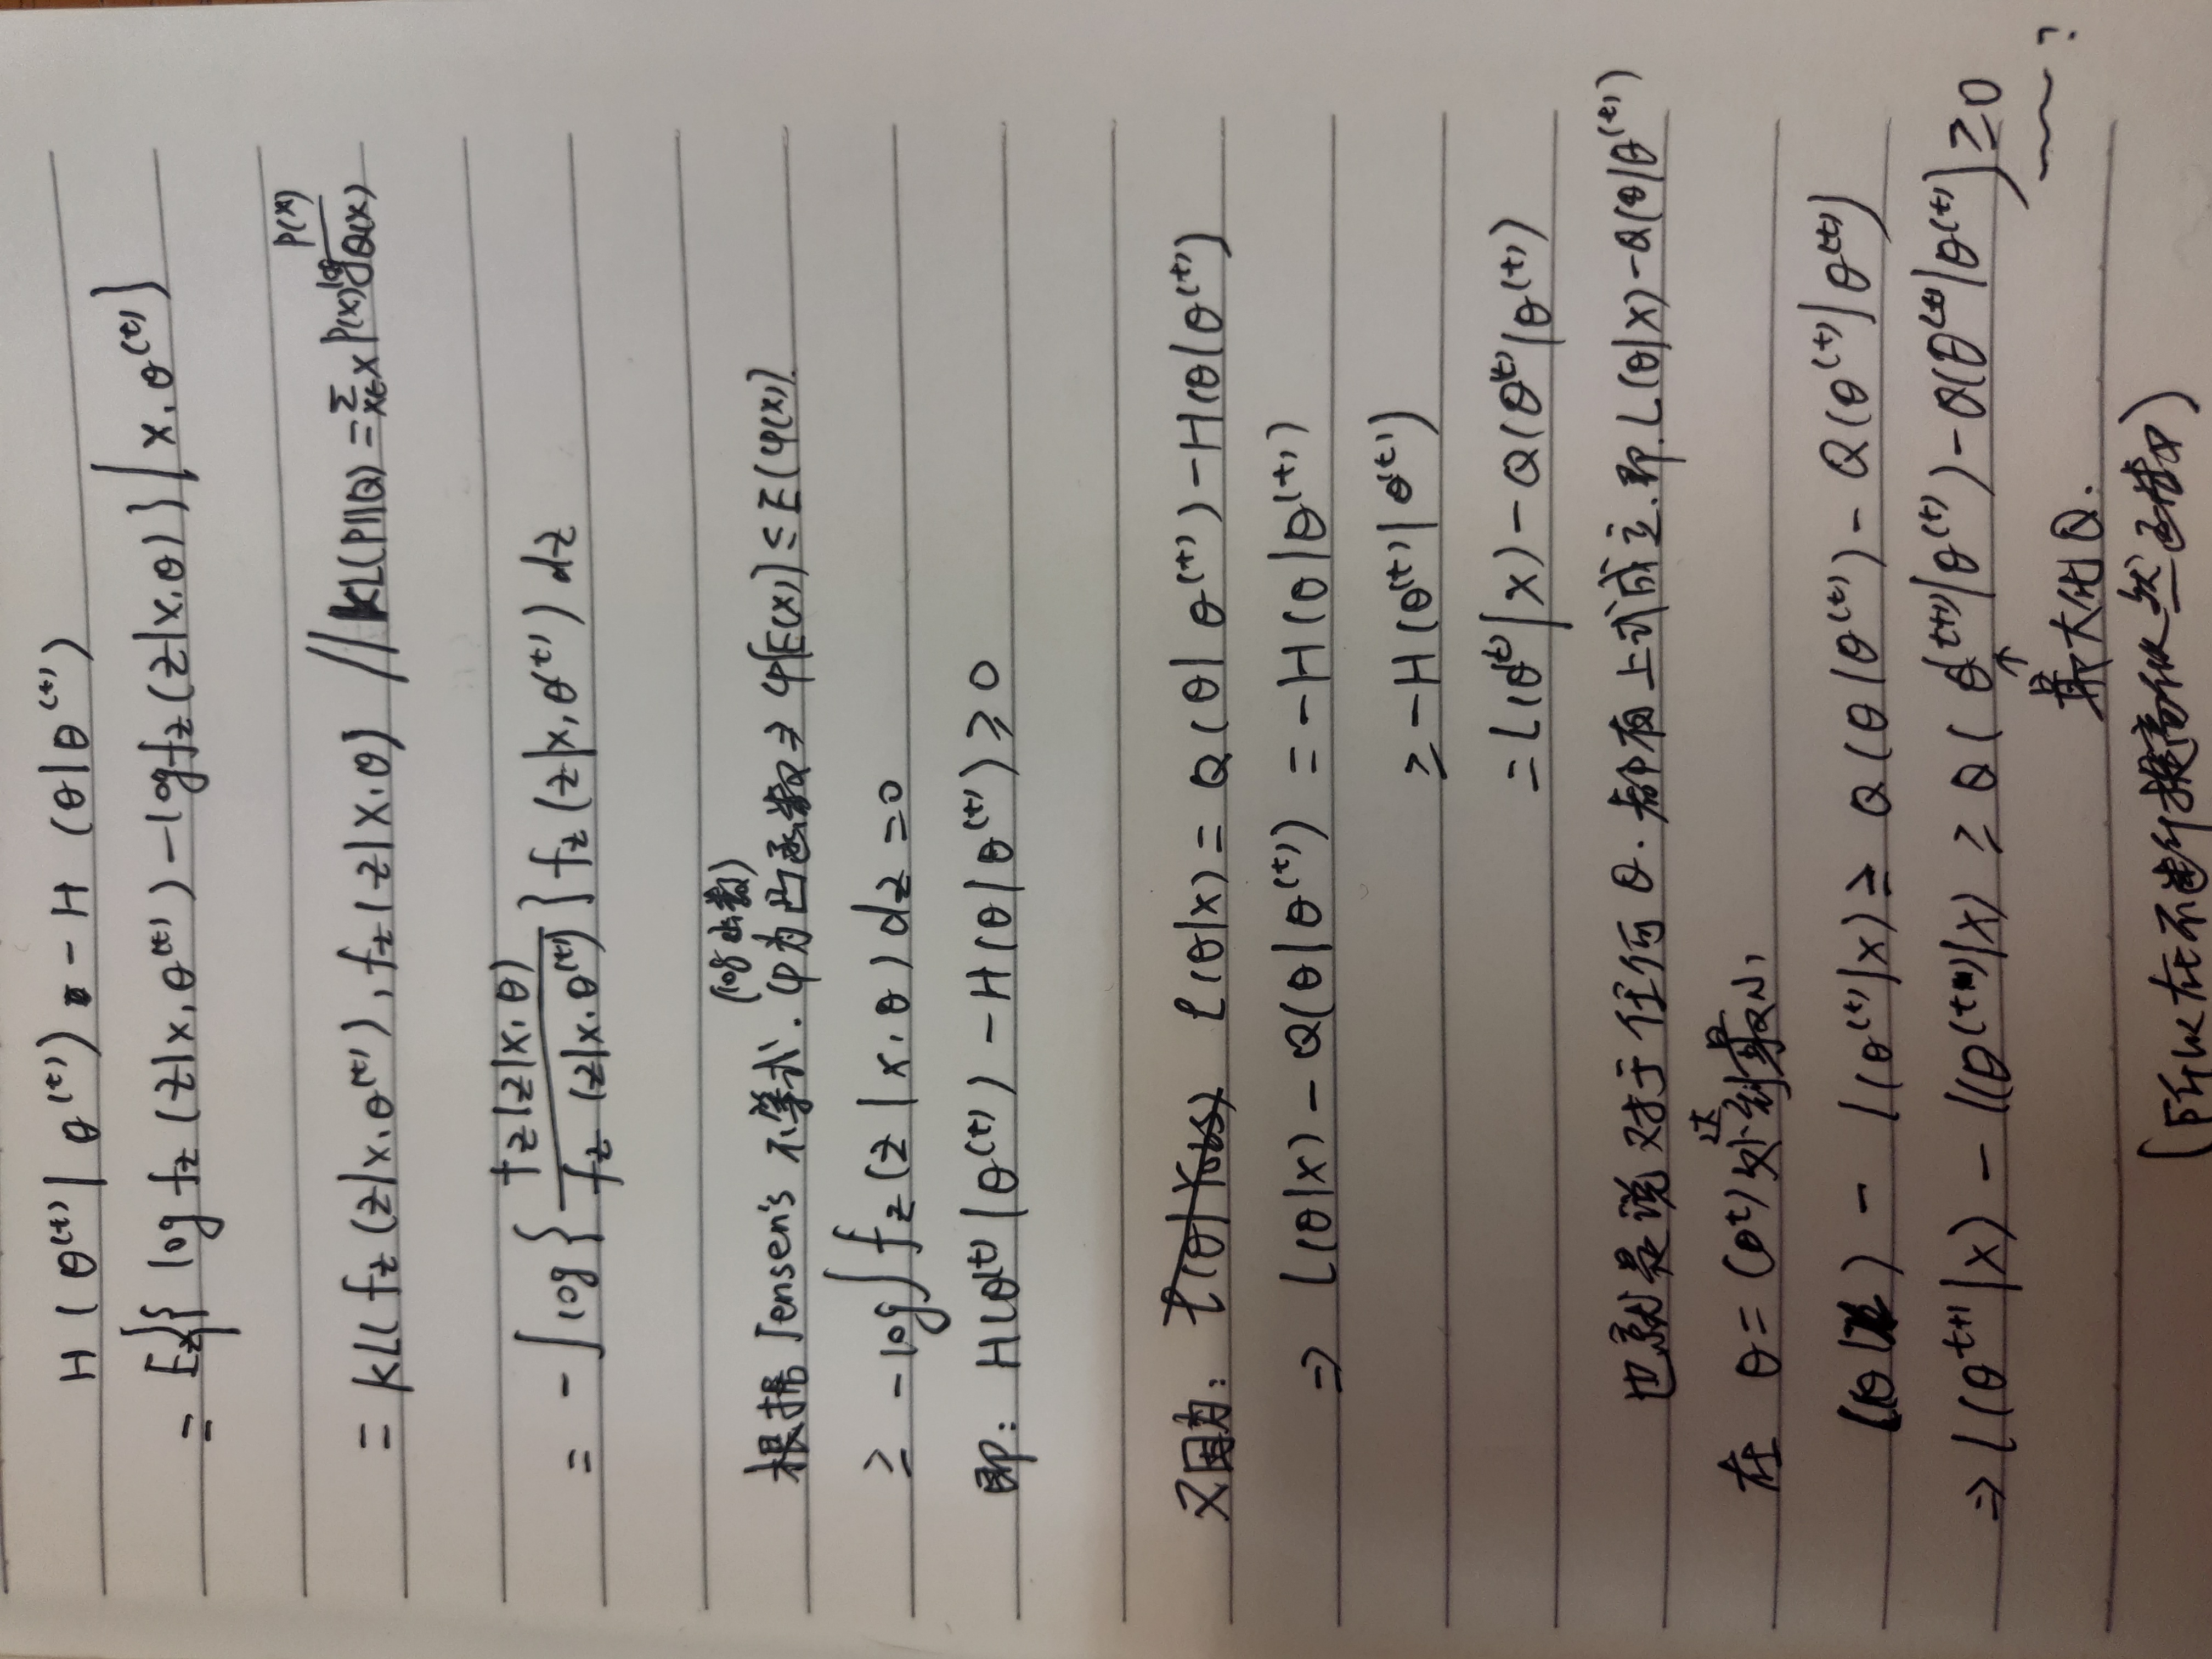 H(θ^(t)|θ^(t)) - H(θ|θ^(t))
= E_z{{log f_z(z|x,θ^(t)) - log f_z(z|x,θ)}|x,θ^(t)}
= KL(f_z(z|x,θ^(t)), f_z(z|x,θ)) // KL(P||Q) = Σ_{x∈X} P(x) log P(x)/Q(x)
= -∫log{f_z(z|x,θ) / f_z(z|x,θ^(t))} f_z(z|x,θ^(t)) dz
(log函数)
根据Jensen's不等式. φ为凸函数⇒φ[E(x)]≤E(φ(x)).
≥ -log∫f_z(z|x,θ)dz = 0
即: H(θ^(t)|θ^(t)) - H(θ|θ^(t)) ≥ 0
又因为: ℓ(θ|x) = Q(θ|θ^(t)) - H(θ|θ^(t))
⇒ L(θ|x) - Q(θ|θ^(t)) = -H(θ|θ^(t))
≥ -H(θ^(t)|θ^(t))
= L(θ^(t)|x) - Q(θ^(t)|θ^(t))
也就是说对于任何θ.都有上式成立.即.L(θ|x)-Q(θ|θ^(t))
在 θ=(θ^t)处达到最小,
l(θ|x) - l(θ^(t)|x) ≥ Q(θ|θ^(t)) - Q(θ^(t)|θ^(t))
⇒ l(θ^t+1|x) - l(θ^(t)|x) ≥ Q(θ^(t+1)|θ^(t)) - Q(θ^(t)|θ^(t)) ≥0
↑ ?
最大化Q.
(所以在不断提高似然函数)